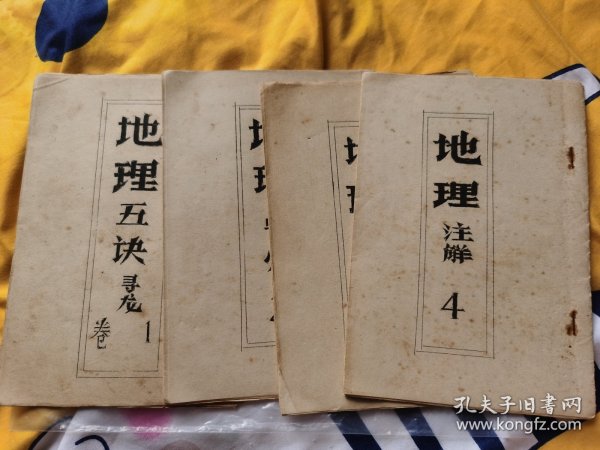 地理五诀
寻龙
卷1
地理
地理
地理
注解
4
孔夫子旧书网
www.kongfz.com